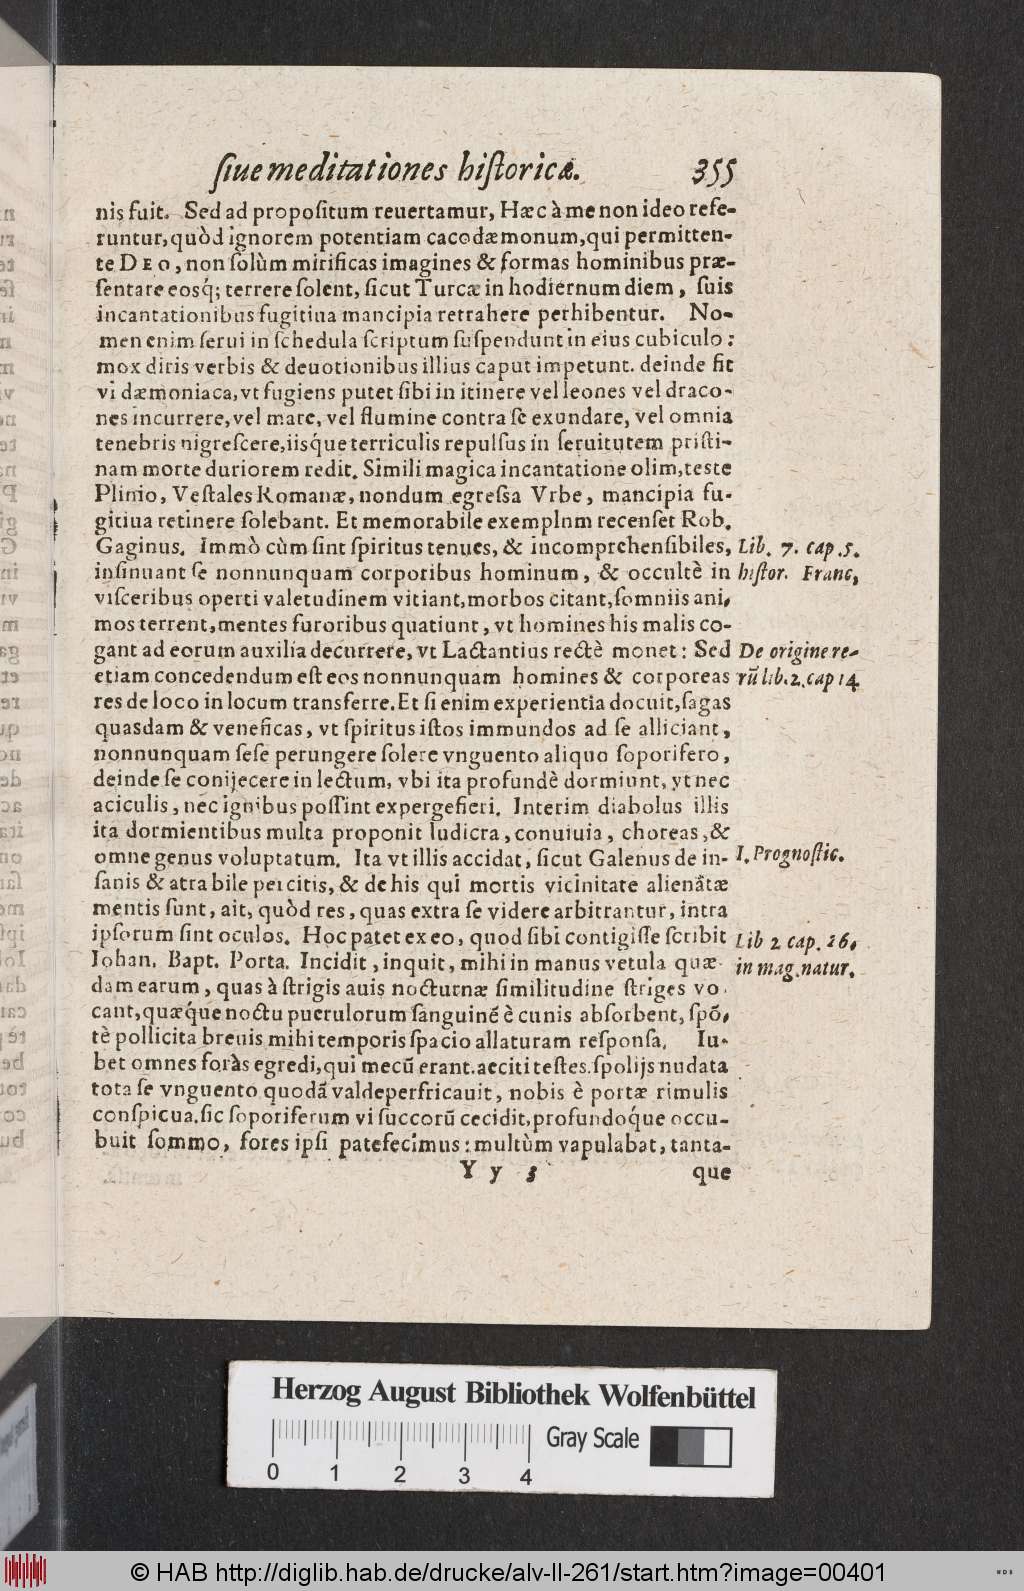 ſiue meditationes hiſtoricæ. 355
nis fuit. Sed ad propoſitum reuertamur, Hæc à me non ideo refe-
runtur, quòd ignorem potentiam cacodæmonum, qui permitten-
te DEO, non ſolùm mirificas imagines & formas hominibus præ-
ſentare eosq́; terrere ſolent, ſicut Turcæ in hodiernum diem, ſuis
incantationibus fugitiua mancipia retrahere perhibentur. No-
men enim ſerui in ſchedula ſcriptum ſuſpendunt in eius cubiculo:
mox diris verbis & deuotionibus illius caput impetunt. deinde fit
vi dæmoniaca, vt fugiens putet ſibi in itinere vel leones vel draco-
nes incurrere, vel mare, vel flumine contra ſe exundare, vel omnia
tenebris nigreſcere, iisq́ue terriculis repulſus in ſeruitutem priſti-
nam morte duriorem redit. Simili magica incantatione olim, teste
Plinio, Veſtales Romanæ, nondum egreſſa Vrbe, mancipia fu-
gitiua retinere ſolebant. Et memorabile exemplnm recenſet Rob.
Gaginus. Immò cùm ſint ſpiritus tenues, & incomprehenſibiles, Lib. 7. cap. 5.
inſinuant ſe nonnunquam corporibus hominum, & occultè in hiſtor. Franc,
viſceribus operti valetudinem vitiant, morbos citant, ſomniis ani-
mos terrent, mentes furoribus quatiunt, vt homines his malis co-
gant ad eorum auxilia decurrere, vt Lactantius rectè monet: Sed De origine re-
etiam concedendum eſt eos nonnunquam homines & corporeas rū lib. 2. cap 14
res de loco in locum transferre. Et ſi enim experientia docuit, ſagas
quasdam & veneficas, vt ſpiritus iſtos immundos ad ſe alliciant,
nonnunquam ſeſe perungere ſolere vnguento aliquo ſoporifero,
deinde ſe conijecere in lectum, vbi ita profundè dormiunt, vt nec
aciculis, nec ignibus poſſint expergefieri. Interim diabolus illis
ita dormientibus multa proponit ludicra, conuiuia, choreas, &
omne genus voluptatum. Ita vt illis accidat, ſicut Galenus de in- I. Prognoſtic.
ſanis & atra bile percitis, & de his qui mortis vicinitate alienatæ
mentis ſunt, ait, quòd res, quas extra ſe videre arbitrantur, intra
ipſorum ſint oculos. Hoc patet ex eo, quod ſibi contigiſſe ſcribit Lib 2 cap. 26.
Iohan. Bapt. Porta. Incidit, inquit, mihi in manus vetula quæ- in mag. natur.
dam earum, quas à ſtrigis auis nocturnæ ſimilitudine ſtriges vo-
cant, quæq́ue noctu puerulorum ſanguinē è cunis abſorbent, ſpō-
tè pollicita breuis mihi temporis ſpacio allaturam reſponſa. Iu-
bet omnes foràs egredi, qui mecū erant. acciti teſtes. ſpolijs nudata
tota ſe vnguento quodā valde perfricauit, nobis è portæ rimulis
conſpicua. ſic ſoporiferum vi ſuccorū cecidit, profundoq́ue occu-
buit ſommo, fores ipſi patefecimus: multùm vapulabat, tanta-
Y y 3 que
Herzog August Bibliothek Wolfenbüttel
Gray Scale
0 1 2 3 4
© HAB http://diglib.hab.de/drucke/alv-ll-261/start.htm?image=00401